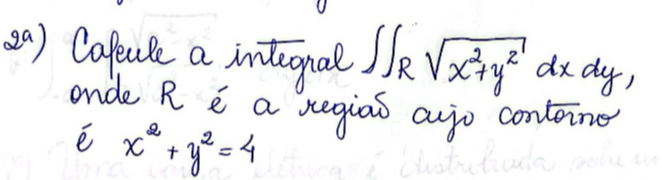 2ª) Calcule a integral ∬_R √(x²+y²) dx dy,
onde R é a região cujo contorno
é x² + y² = 4